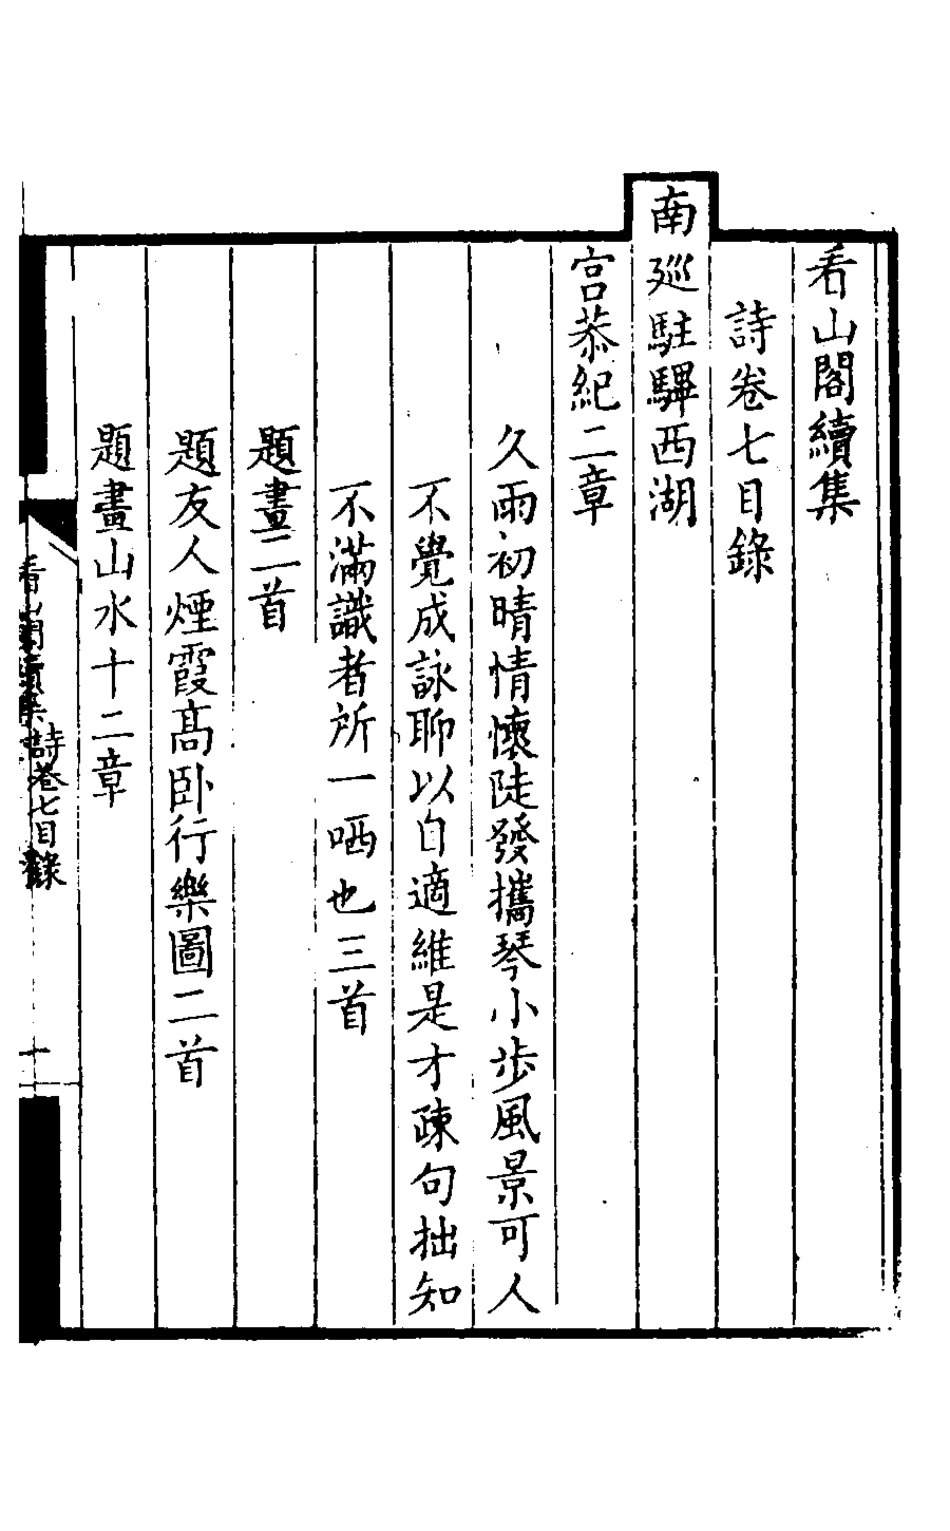 看山閣續集
詩卷七目錄
南廵駐驆西湖
宫恭紀二章
久雨初晴情懷陡發攜琴小步風景可人
不覺成詠聊以自適維是才疎句拙知
不滿識者所一哂也三首
題畫二首
題友人煙霞髙卧行樂圖二首
題畫山水十二章
看山閣續集
詩卷七目錄
一